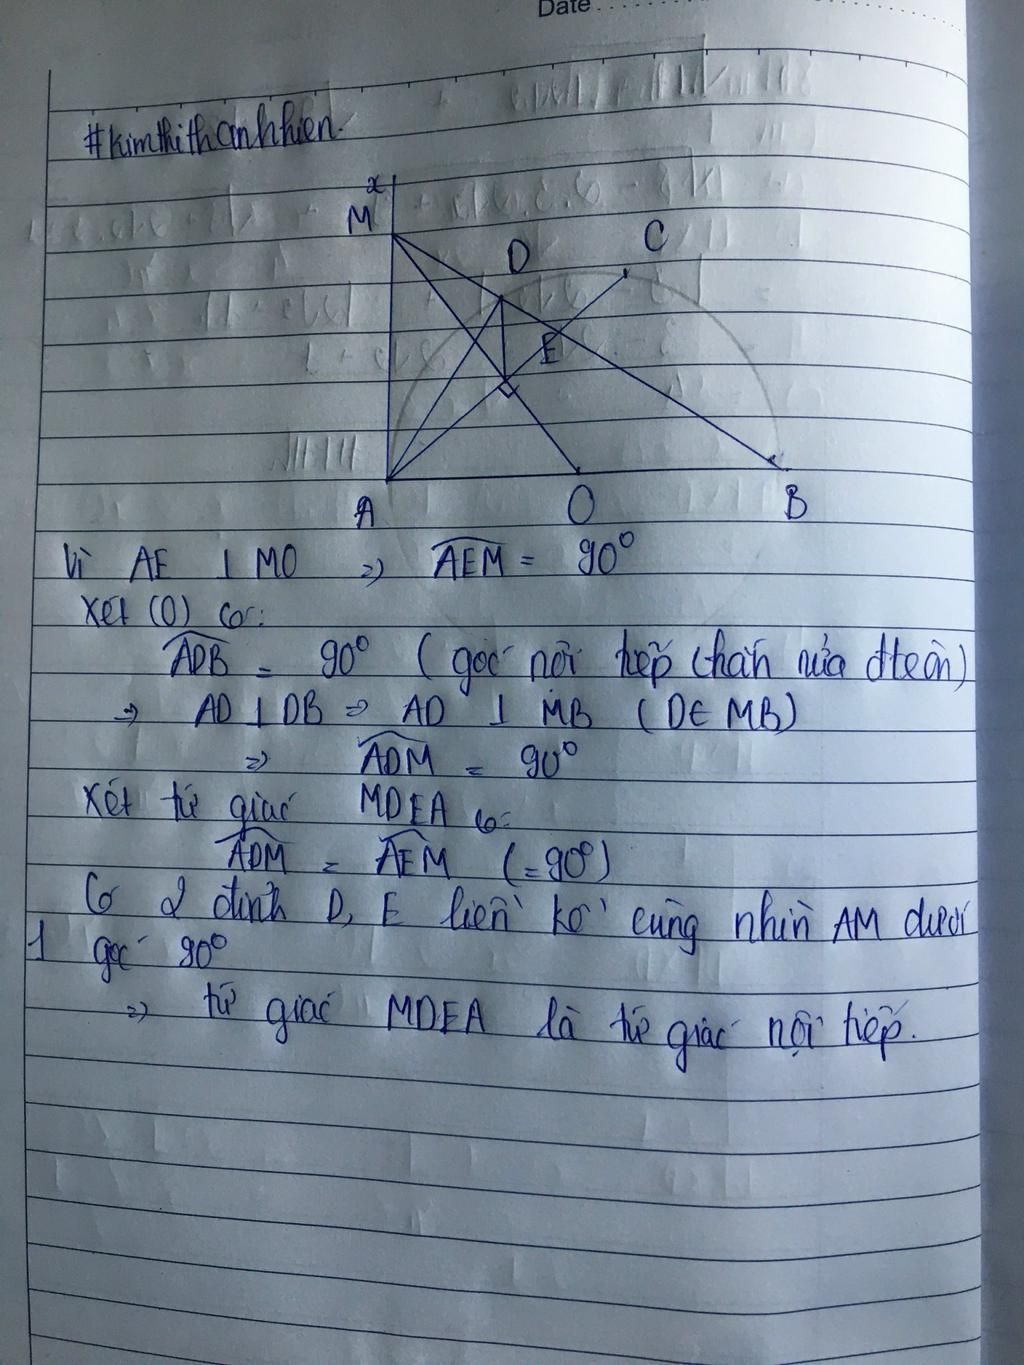 Date
#kimthithanhhien.
x
M
D
C
E
A
O
B
Vì AE ⊥ MO => AEM = 90°
Xét (O) có:
ADB = 90° (góc nội tiếp chắn nửa đtròn)
=> AD ⊥ DB => AD ⊥ MB (D∈MB)
=> ADM = 90°
Xét tứ giác MDEA có:
ADM = AEM (=90°)
Có 2 đỉnh D, E liền kề cùng nhìn AM dưới
1 góc 90°
=> tứ giác MDEA là tứ giác nội tiếp.